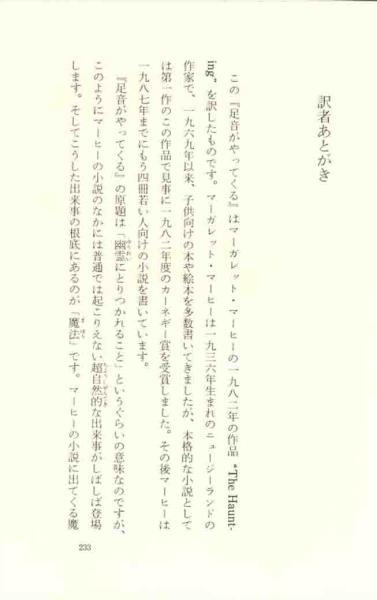 訳者あとがき
この『足音がやってくる』はマーガレット・マーヒーの一九八二年の作品 “The Haunt-
ing” を訳したものです。マーガレット・マーヒーは一九三六年生まれのニュージーランドの
作家で、一九六九年以来、子供向けの本や絵本を多数書いてきましたが、本格的な小説として
は第一作のこの作品で見事に一九八二年度のカーネギー賞を受賞しました。その後マーヒーは
一九八七年までにもう四冊若い人向けの小説を書いています。
『足音がやってくる』の原題は「幽霊にとりつかれること」というぐらいの意味なのですが、
このようにマーヒーの小説のなかには普通では起こりえない超自然的な出来事がしばしば登場
します。そしてこうした出来事の根底にあるのが「魔法」です。マーヒーの小説に出てくる魔
233